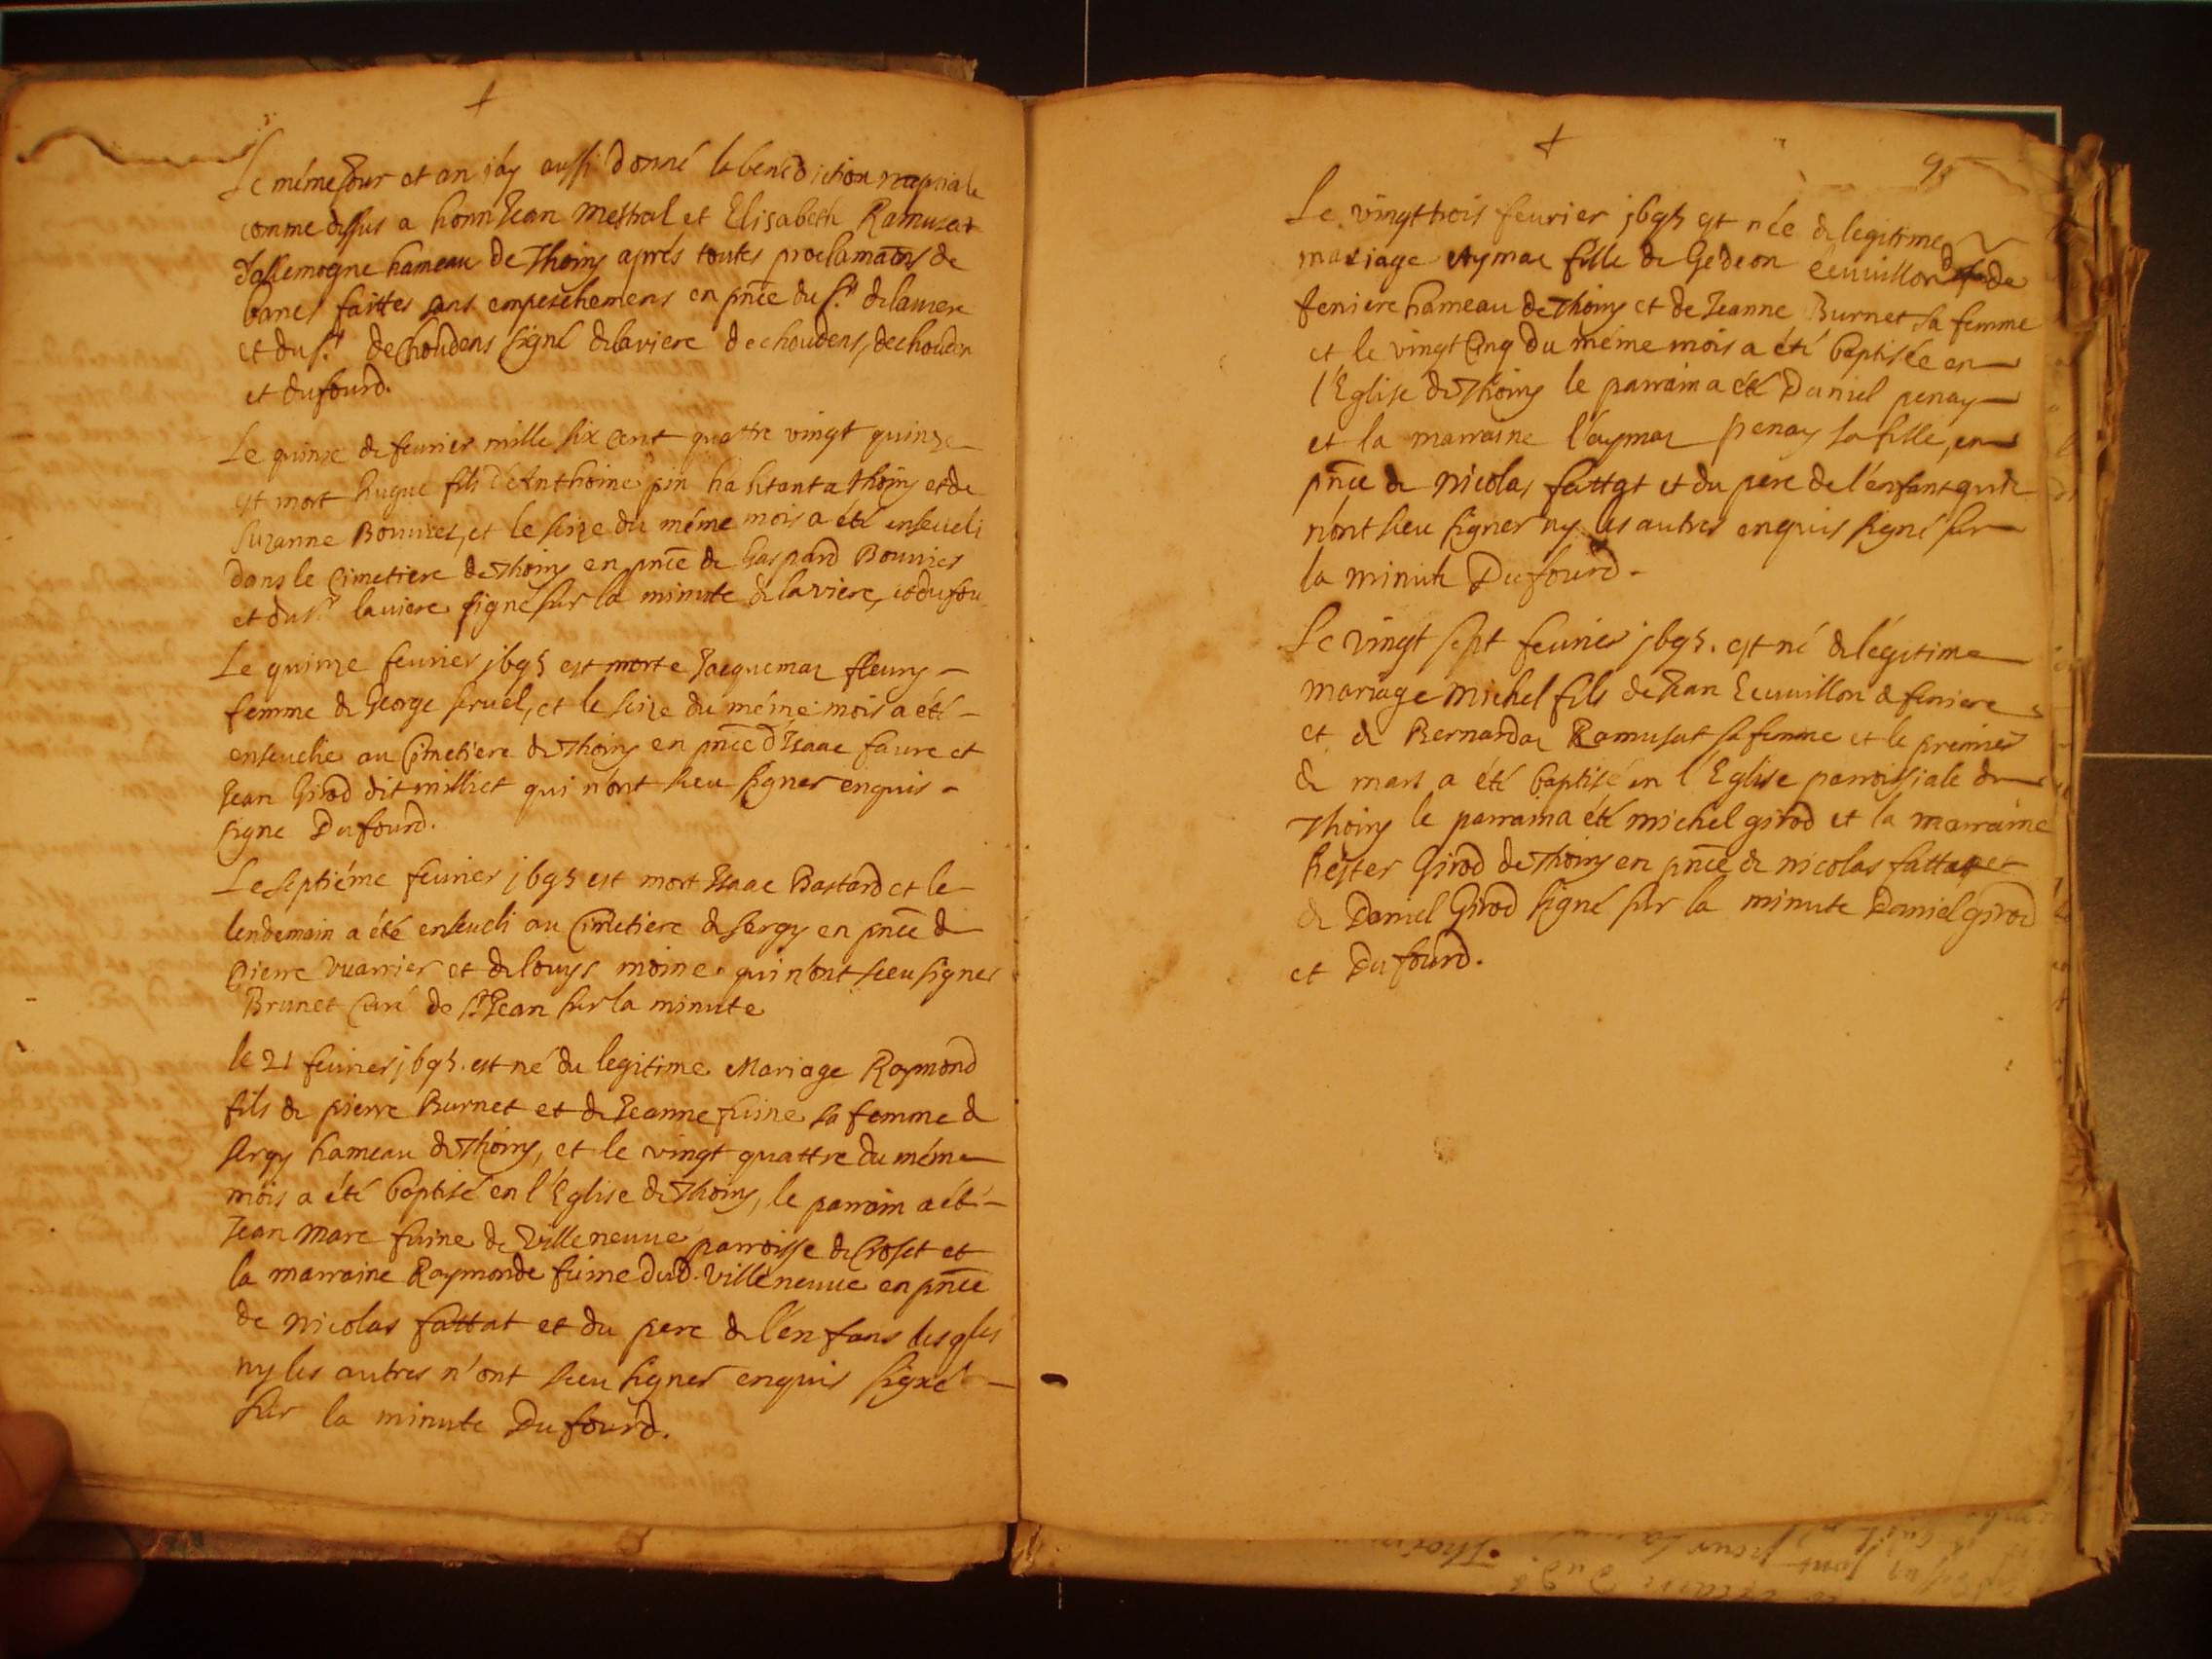 Le méme Jour et an j'ay aussi donné la benediction nuptiale
comme dessus a honn Jean Mestral et Elisabeth Ramuzat
d'allemogne hameau de Thoiry aprés toutes proclamaõns de
bancs faittes sans empeschemens en pn̄ce du Sr. delaviere
et du Sr. dechoudens signé delaviere dechoudens, dechouden
et dufourd.
Le quinze de feurier mille six cent quattre vingt quinze
est mort hugue fils d'Anthoine pin habitant a Thoiry et de
Suzanne Bouvier, et le seize du méme mois a été enseueli
dans le Cimetiere de Thoiry en pn̄ce de Gaspard Bouvier
et du Sr. laviere signe sur la minute delaviere, et dufou
Le quinze feurier j695 est morte Jacquemaz fleury
femme de George seruel, et le seize du méme mois a été
enseuelie au Cimetiere de Thoiry en pn̄ce d'Isaac faure et
Jean Girod dit milliet qui n'ont sceu signer enquis
signe Dufourd.
Le septiéme feurier j695 est mort Isaac Bastard et le
lendemain a été enseueli au Cimetiere de Sergy en pn̄ce de
Pierre vuarrier et de louys moine qui n'ont sceu signer
Brunet Curé de St Jean sur la minute
le 21 feurier j695. est né du legitime Mariage Raymond
fils de pierre Burnet et de Jeanne fuine sa femme de
Sergy hameau de Thoiry, et le vingt quattre du méme
mois a été baptisé en l'Eglise de Thoiry, le parrain a été
Jean Marc fuine de Villeneuue parroisse de Croset et
la marraine Raymonde fuine dud. Villeneuue en pn̄ce
de Nicolas fattat et du pere de l'enfans lesqles
ny les autres n'ont sceu signer enquis signé
sur la minute Dufourd.
Le vingt trois feurier j695 est née de legitime
mariage Aymaz fille de Gedeon Ecuuillon de
feniere hameau de Thoiry et de Jeanne Burnet sa femme
et le vingt Cinq du méme mois a été baptisée en
l'Eglise de Thoiry le parrain a été Daniel penay
et la marraine l'aymaz penay sa fille, en
pn̄ce de Nicolas fattat et du pere de l'enfant qui
n'ont sceu signer ny les autres enquis signé sur
la minute Dufourd.
Le vingt sept feurier j695. est né de légitime
mariage Michel fils de Jean Ecuuillon de feniere
et de Bernardaz Ramusat sa femme et le premier
de mars a été baptisé en l'Eglise parroissiale de
Thoiry le parrain a été michel girod et la marraine
hester Girod de Thoiry en pn̄ce de nicolas fattat et
de Daniel Girod signé sur la minute Daniel girod
et Dufourd.